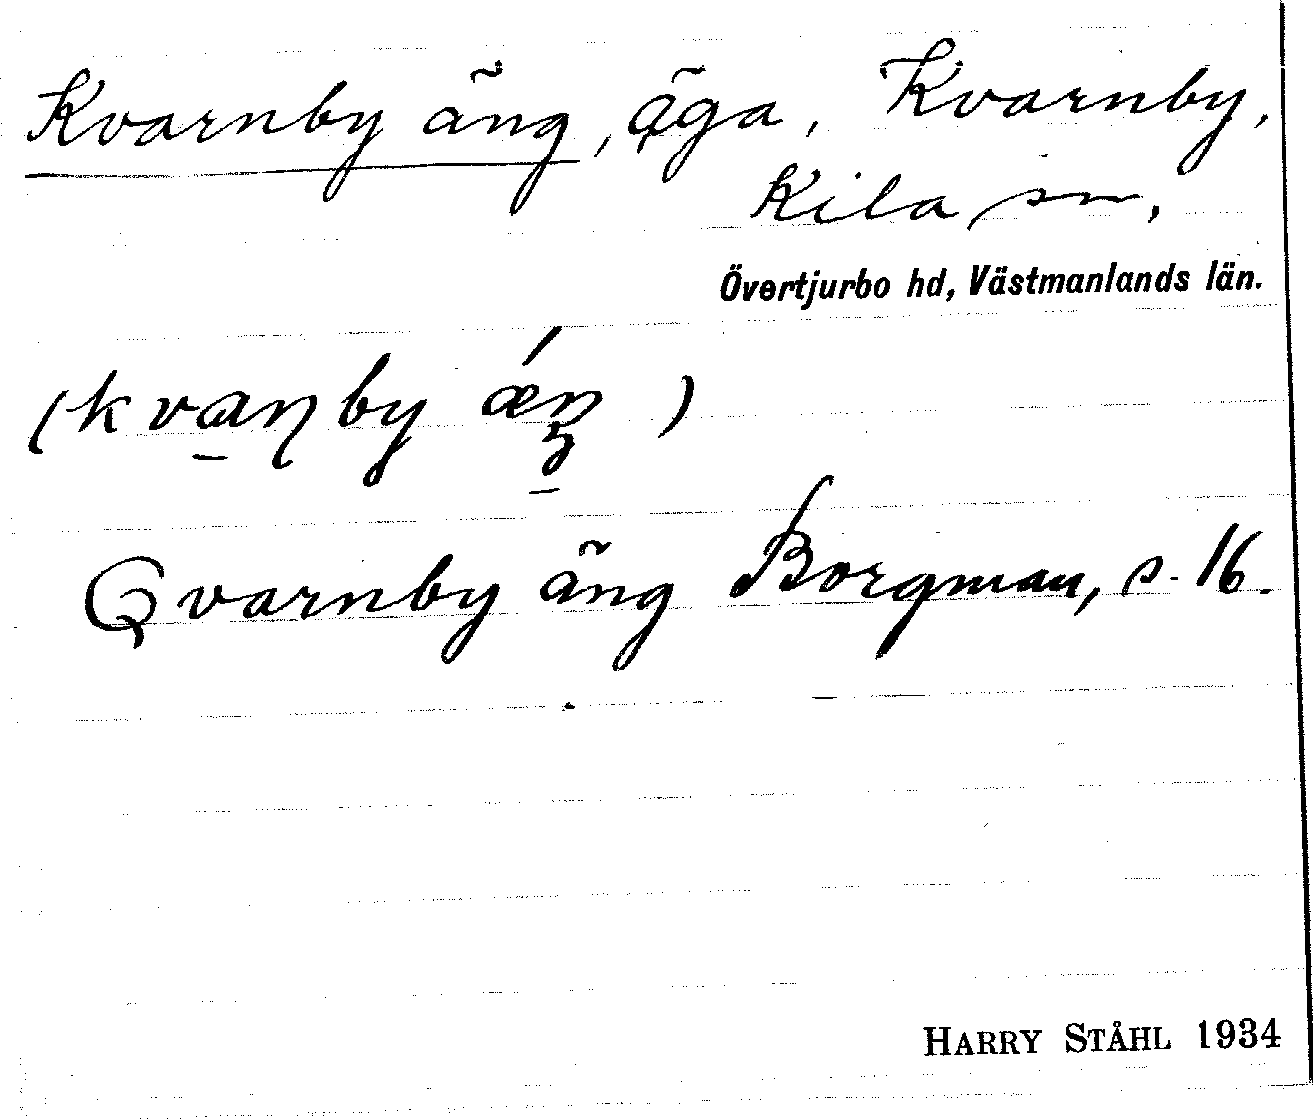 Kvarnby äng, äga, Kvarnby,
Kila sn,
Övertjurbo hd, Västmanlands län.
(kvaɳby æ´ŋ)
Qvarnby äng Borgman, s. 16.
HARRY STÅHL 1934